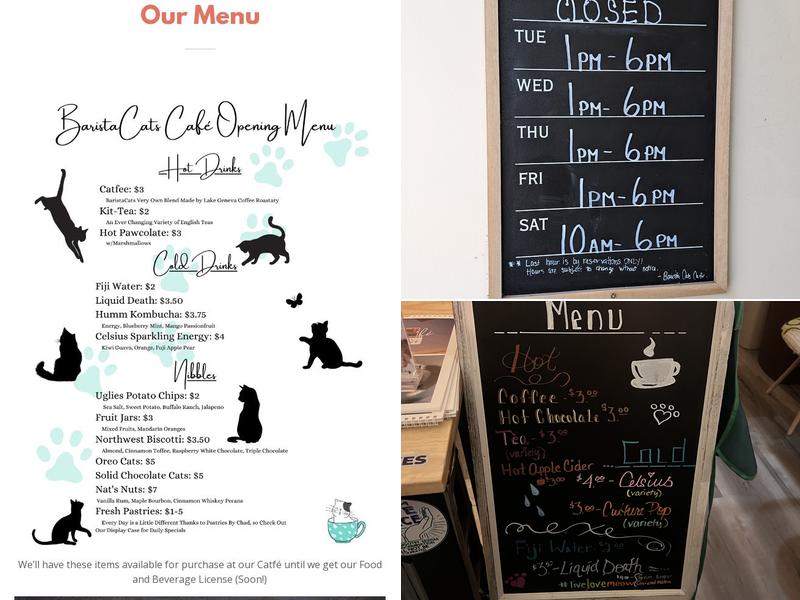 Our Menu
BaristaCats Café Opening Menu
Hot Drinks
Catfee: $3
BaristaCats Very Own Blend Made by Lake Geneva Coffee Roastary
Kit-Tea: $2
An Ever Changing Variety of English Teas
Hot Pawcolate: $3
w/Marshmallows
Cold Drinks
Fiji Water: $2
Liquid Death: $3.50
Humm Kombucha: $3.75
Energy, Blueberry Mint, Mango Passionfruit
Celsius Sparkling Energy: $4
Kiwi Guava, Orange, Fuji Apple Pear
Nibbles
Uglies Potato Chips: $2
Sea Salt, Sweet Potato, Buffalo Ranch, Jalapeno
Fruit Jars: $3
Mixed Fruits, Mandarin Oranges
Northwest Biscotti: $3.50
Almond, Cinnamon Toffee, Raspberry White Chocolate, Triple Chocolate
Oreo Cats: $5
Solid Chocolate Cats: $5
Nat's Nuts: $7
Vanilla Rum, Maple Bourbon, Cinnamon Whiskey Pecans
Fresh Pastries: $1-5
Every Day is a Little Different Thanks to Pastries By Chad, so Check Out
Our Display Case for Daily Specials
We'll have these items available for purchase at our Catfé until we get our Food
and Beverage License (Soon!)
CLOSED
TUE 1PM- 6PM
WED 1PM- 6PM
THU 1PM- 6PM
FRI 1PM- 6PM
SAT 10AM- 6PM
** Last hour is by reservations ONLY!
Hours are subject to change without notice.
Menu
Hot
Coffee - $3.00
Hot Chocolate $3.00
Tea - $3.00
(variety)
Hot Apple Cider
$3.00
Cold
$4.00 - Celsius
(variety)
$3.00 - Culture Pop
(variety)
Fiji Water
Liquid Death
#livelovemeow